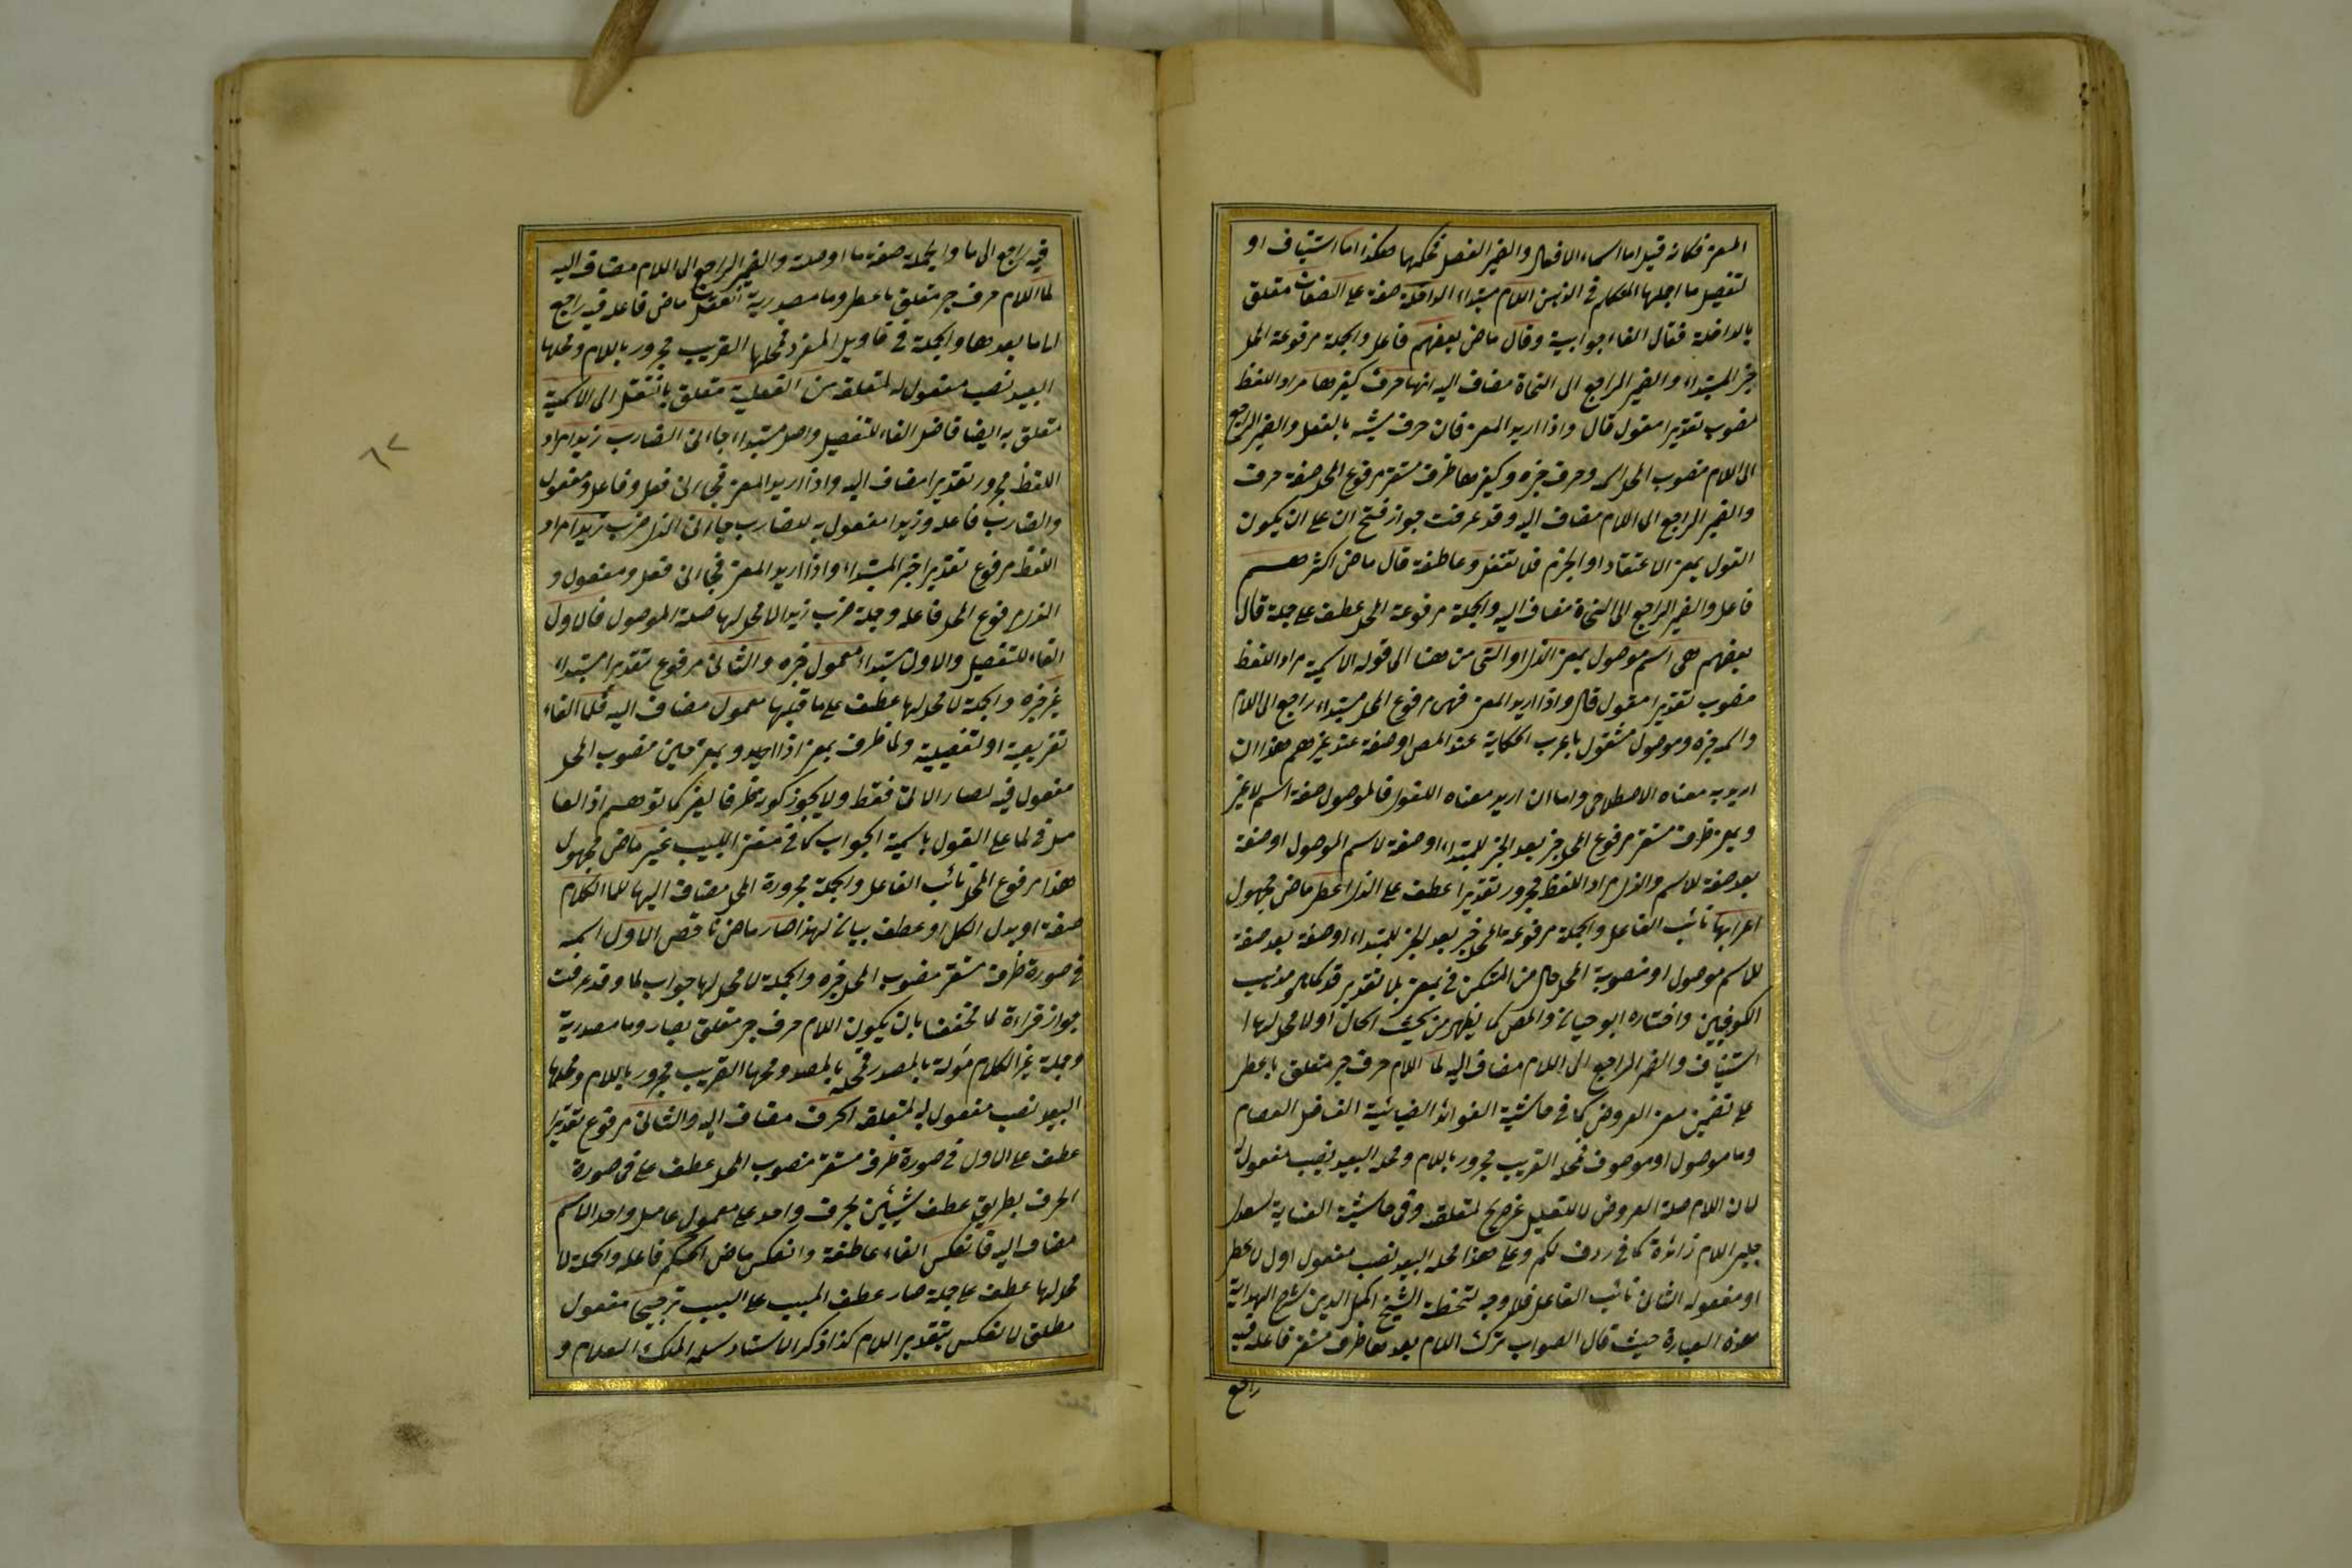 المعنى فكانه قيل اما اسماء الافعال والضمير الفصل فحكمها هكذا اما استيناف او
لتفصيل ما اجملها المتكلم في الذهن اللام مبتداء الداخلة صفة على الصفات متعلق
بالداخلة فقال الفاء جوابية وقال ماض بعضهم فاعل والجملة مرفوعة المحل
خبر المبتداء والضمير الراجع الى النحاة مضاف اليه انها حرف كغيرها مراد اللفظ
منصوب تقديرا مقول قال واذا اريد المعنى فان حرف مشبه بالفعل والضمير الراجع
الى اللام منصوب المحل اسمه وحرف خبره وكغيرها ظرف مستقر مرفوع المحل صفة حرف
والضمير الراجع الى اللام مضاف اليه وقد عرفت جواز فتح ان على ان يكون
القول بمعنى الاعتقاد او الجزم فلا تغفل وعاطفة قال ماض اكثرهم
فاعل والضمير الراجع الى النحاة مضاف اليه والجملة مرفوعة المحل عطف على جملة قال
بعضهم هي اسم موصول بمعنى الذي او التي من هنا الى قوله الاسمية مراد اللفظ
منصوب تقديرا مقول قال واذا اريد المعنى فهي مرفوع المحل مبتداء راجع الى اللام
واسم خبره وموصول مشغول باعراب الحكاية عند المص او صفة عند غيرهم هذا ان
اريد به معناه الاصطلاحي واما ان اريد معناه اللغوي فالموصول صفة اسم لا غير
وبمعنى ظرف مستقر مرفوع المحل خبر بعد الخبر للمبتداء او صفة لاسم الموصول او صفة
بعد صفة للاسم والذي مراد اللفظ مجرور تقديرا عطف على الذي اعطي ماض مجهول
اعرابها نائب الفاعل والجملة مرفوعة المحل خبر بعد الخبر للمبتداء او صفة بعد صفة
للاسم موصول او منصوبة المحل حال من المستكن في بمعنى بلا تقدير قد كما هو مذهب
الكوفيين واختاره ابو حيان والمص كما يظهر من بحث الحال او لا محل لها
استيناف والضمير الراجع الى اللام مضاف اليه لما اللام حرف جر متعلق باعطي
على تضمين معنى العروض كما في حاشية الفوائد الضيائية الفاضل العصام
وما موصول او موصوف فمحله القريب مجرور باللام ومحله البعيد نصب مفعول له
لان اللام صلة العروض لا للتعليل غير صريح لمتعلقه وفي حاشية العناية لسعدي
جلبي اللام زائدة كما في ردف لكم وعلى هذا محله البعيد نصب مفعول اول لاعطي
او مفعوله الثاني نائب الفاعل فلا وجه لتخطئة الشيخ اكمل الدين شارح الهداية
هذه العبارة حيث قال الصواب ترك اللام بعدها ظرف مستقر فاعله فيه
راجع
فيه راجع الى ما والجملة صفة ما او صلة والضمير الراجع الى اللام مضاف اليه
لما اللام حرف جر متعلق باعطي وما مصدرية انتقل ماض فاعله فيه راجع
الى ما بعدها والجملة في تاويل المفرد فمحلها القريب مجرور باللام ومحلها
البعيد نصب مفعول له لمتعلقه من الفعلية متعلق بانتقل الى الاسمية
متعلق به ايضا فاصل الفاء للتفصيل واصل مبتداء جاءني الضارب زيدا مراد
اللفظ مجرور تقديرا مضاف اليه واذا اريد المعنى فجاءني فعل وفاعل ومفعول
والضارب فاعله وزيدا مفعول به للضارب جاءني الذي ضرب زيدا مراد
اللفظ مرفوع تقديرا خبر المبتداء واذا اريد المعنى فجاءني فعل ومفعول و
الذي مرفوع المحل فاعله وجملة ضرب زيدا لا محل لها صلة الموصول فالاول
الفاء للتفصيل والاول مبتداء معمول خبره والثاني مرفوع تقديرا مبتداء
غير خبره والجملة لا محل لها عطف على ما قبلها معمول مضاف اليه فلما الفاء
تفريعية او تفصيلية ولما ظرف بمعنى اذا اريد وبمعنى حين منصوب المحل
مفعول فيه لصار الاتي فقط ولا يجوز كونه ظرفا لغير كما توهم اذ العا
مل في لما على القول باسمية الجواب كما في مغني اللبيب غير ماض مجهول
هذا مرفوع المحل نائب الفاعل والجملة مجرورة المحل مضاف اليها للما الكلام
صفة او بدل الكل او عطف بيان لهذا صار ماض ناقص الاول اسمه
في صورة ظرف مستقر منصوب المحل خبره والجملة لا محل لها جواب لما وقد عرفت
جواز قراءة لما مخففا بان يكون اللام حرف جر متعلق بصار وما مصدرية
وجملة غير الكلام مؤلة بالمصدر فمحله بالمصدر ومحلها القريب مجرور باللام ومحلها
البعيد نصب مفعول له لمتعلقه الحرف مضاف اليه والثاني مرفوع تقديرا
عطف على الاول في صورة ظرف مستقر منصوب المحل عطف على في صورة
الحرف بطريق عطف شيئين بحرف واحد على معمولي عامل واحد الاسم
مضاف اليه فانعكس الفاء عاطفة وانعكس ماض الحكم فاعله والجملة لا
محل لها عطف على جملة صار عطف المسبب على السبب ترجيحا مفعول
مطلق لانعكس بتقدير اللام كذا ذكر الاستاد سلمه الملك العلام و